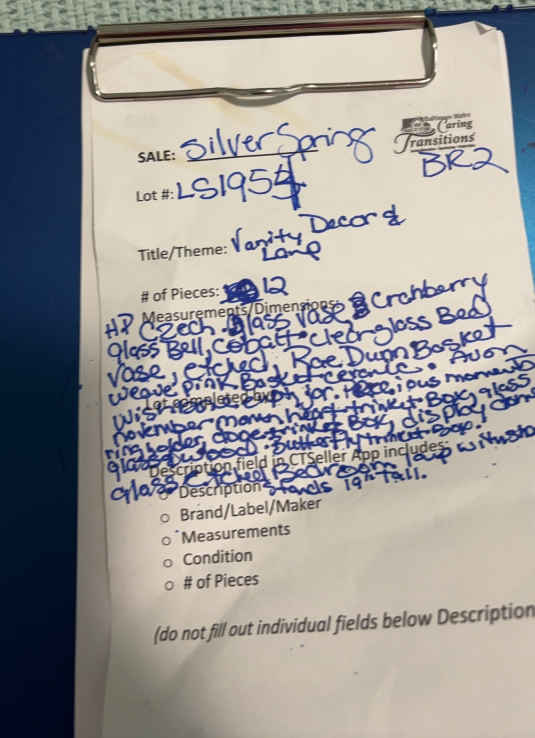 Caring
Transitions
SALE: Silver Spring
BR2
Lot #: LS1954
Title/Theme: Vanity Decor &
Lamp
# of Pieces: 12
Measurements/Dimensions:
HP Czech. Glass Vase & Crchberry
glass Bell, Cobalt + Clear glass Bed
Vase, etched, Rae Dunn Basket
weave, pink Basket ceramic. Avon
Wish jar. Precious moments
november heart trinket Box, glass
ring holder, doge trinket Box, display dome
glass & wood, Butterfly trinket Box.
Description field in CTSeller App includes:
Glass etched Bedroom lamp with
stands 19" Tall.
Description
Brand/Label/Maker
Measurements
Condition
# of Pieces
(do not fill out individual fields below Description